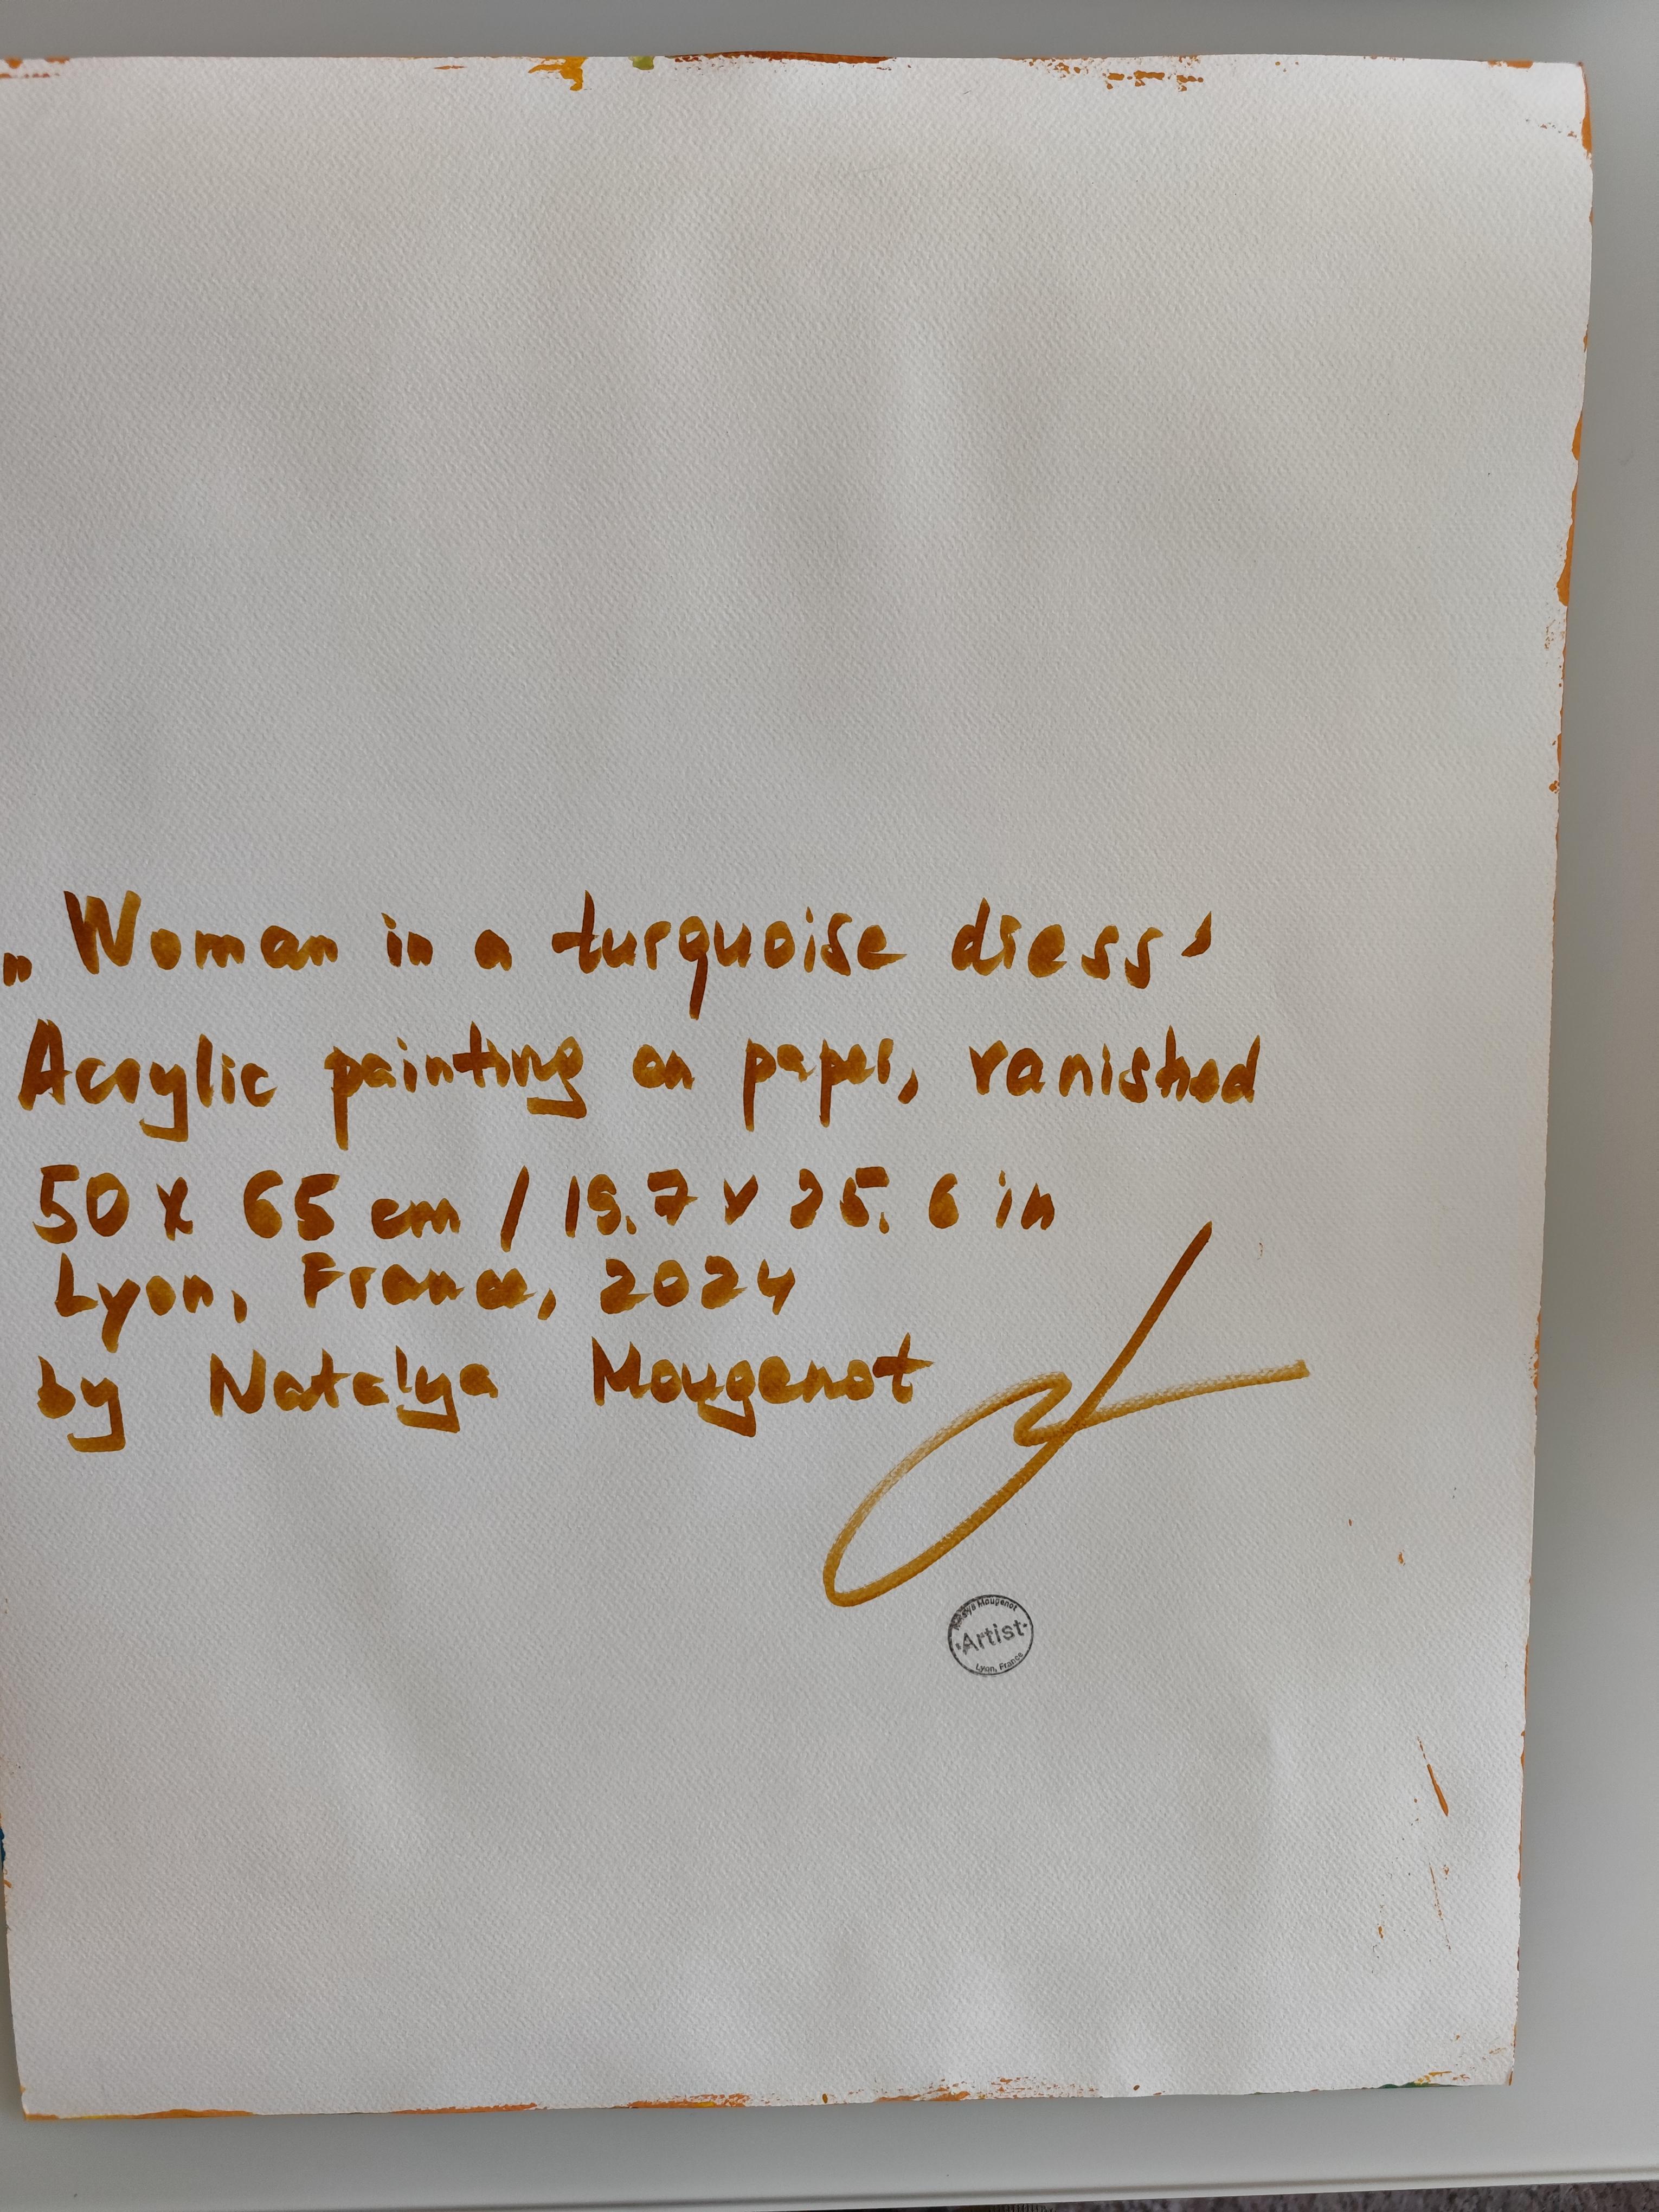 „Woman in a turquoise dress'
Acrylic painting on paper, vanished
50 x 65 cm / 19.7 x 25.6 in
Lyon, France, 2024
by Natalya Mougenot
Natalya Mougenot
Artist
Lyon, France